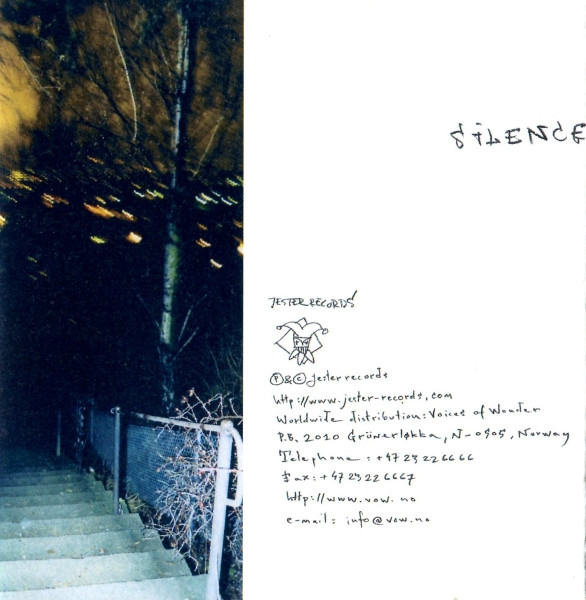 SILENCE
JESTER RECORDS
Ⓟ & © jester records
http://www.jester-records.com
Worldwide distribution: Voices of Wonder
P.B. 2010 Grünerløkka, N-0505, Norway
Telephone : +47 23 22 66 66
Fax: +47 23 22 66 67
http://www.vow.no
e-mail: info@vow.no